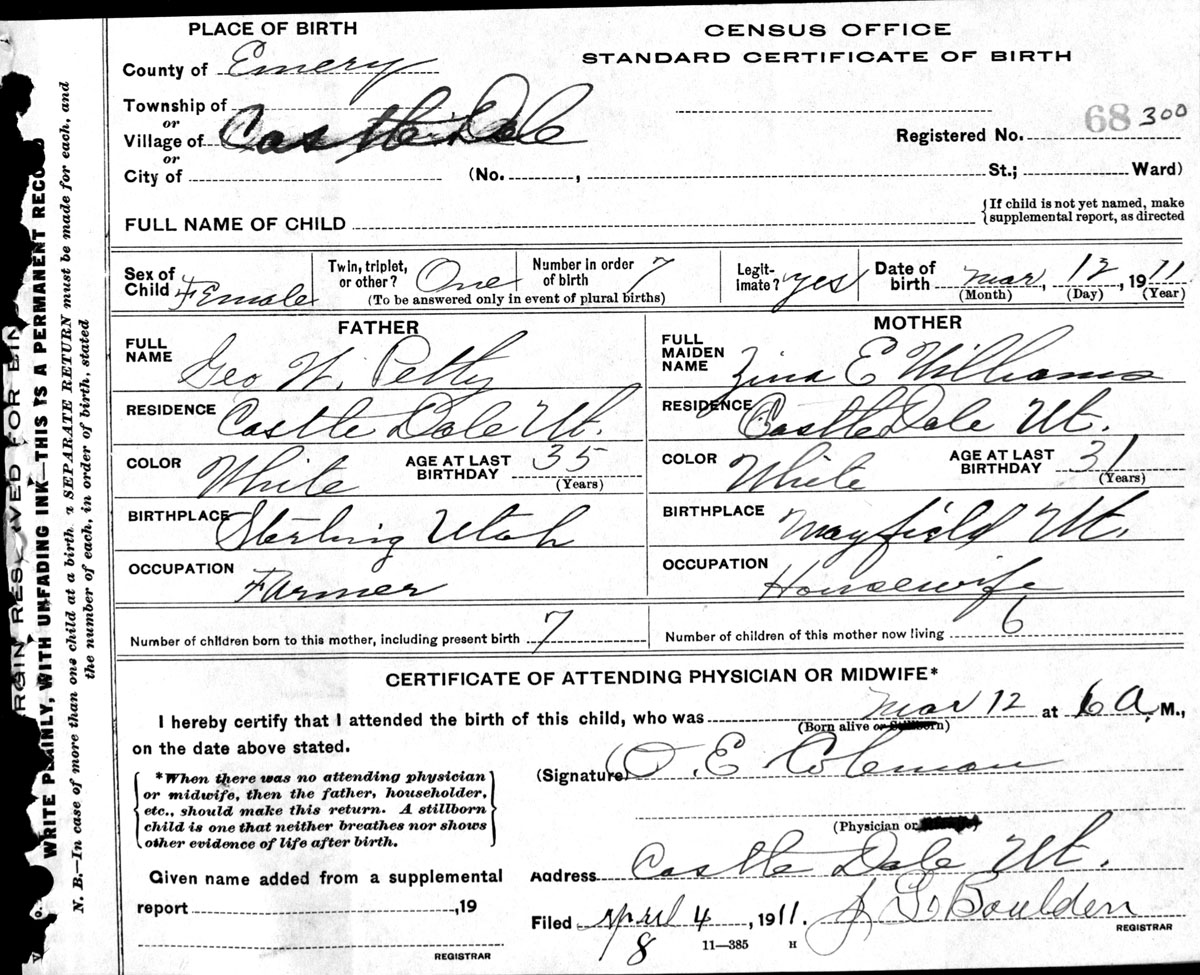 PLACE OF BIRTH
CENSUS OFFICE
STANDARD CERTIFICATE OF BIRTH
County of Emery
Township of
or
Village of Castle Dale
or
City of (No. , St.; Ward)
Registered No. 68 300
FULL NAME OF CHILD
{If child is not yet named, make
supplemental report, as directed
Sex of Child Female
Twin, triplet, or other? One
Number in order of birth 7
(To be answered only in event of plural births)
Legit-imate? yes
Date of birth Mar, 12, 1911
(Month) (Day) (Year)
FATHER
FULL NAME Geo W. Petty
RESIDENCE Castle Dale Ut.
COLOR White
AGE AT LAST BIRTHDAY 35
(Years)
BIRTHPLACE Sterling Utah
OCCUPATION Farmer
MOTHER
FULL MAIDEN NAME Zina E Williams
RESIDENCE Castle Dale Ut.
COLOR White
AGE AT LAST BIRTHDAY 31
(Years)
BIRTHPLACE Mayfield Ut.
OCCUPATION Housewife
Number of children born to this mother, including present birth 7
Number of children of this mother now living 6
CERTIFICATE OF ATTENDING PHYSICIAN OR MIDWIFE*
I hereby certify that I attended the birth of this child, who was Mar 12 at 6 A. M.,
(Born alive or Stillborn)
on the date above stated.
{*When there was no attending physician
or midwife, then the father, householder,
etc., should make this return. A stillborn
child is one that neither breathes nor shows
other evidence of life after birth.}
(Signature) O. E Coleman
(Physician or
Address Castle Dale Ut.
Given name added from a supplemental
report ,19
REGISTRAR
Filed April 4, 1911. J G Boulden
REGISTRAR
8 11—385 H
WRITE PLAINLY, WITH UNFADING INK—THIS IS A PERMANENT RECO
N. B.—In case of more than one child at a birth a SEPARATE RETURN must be made for each, and
the number of each, in order of birth, stated